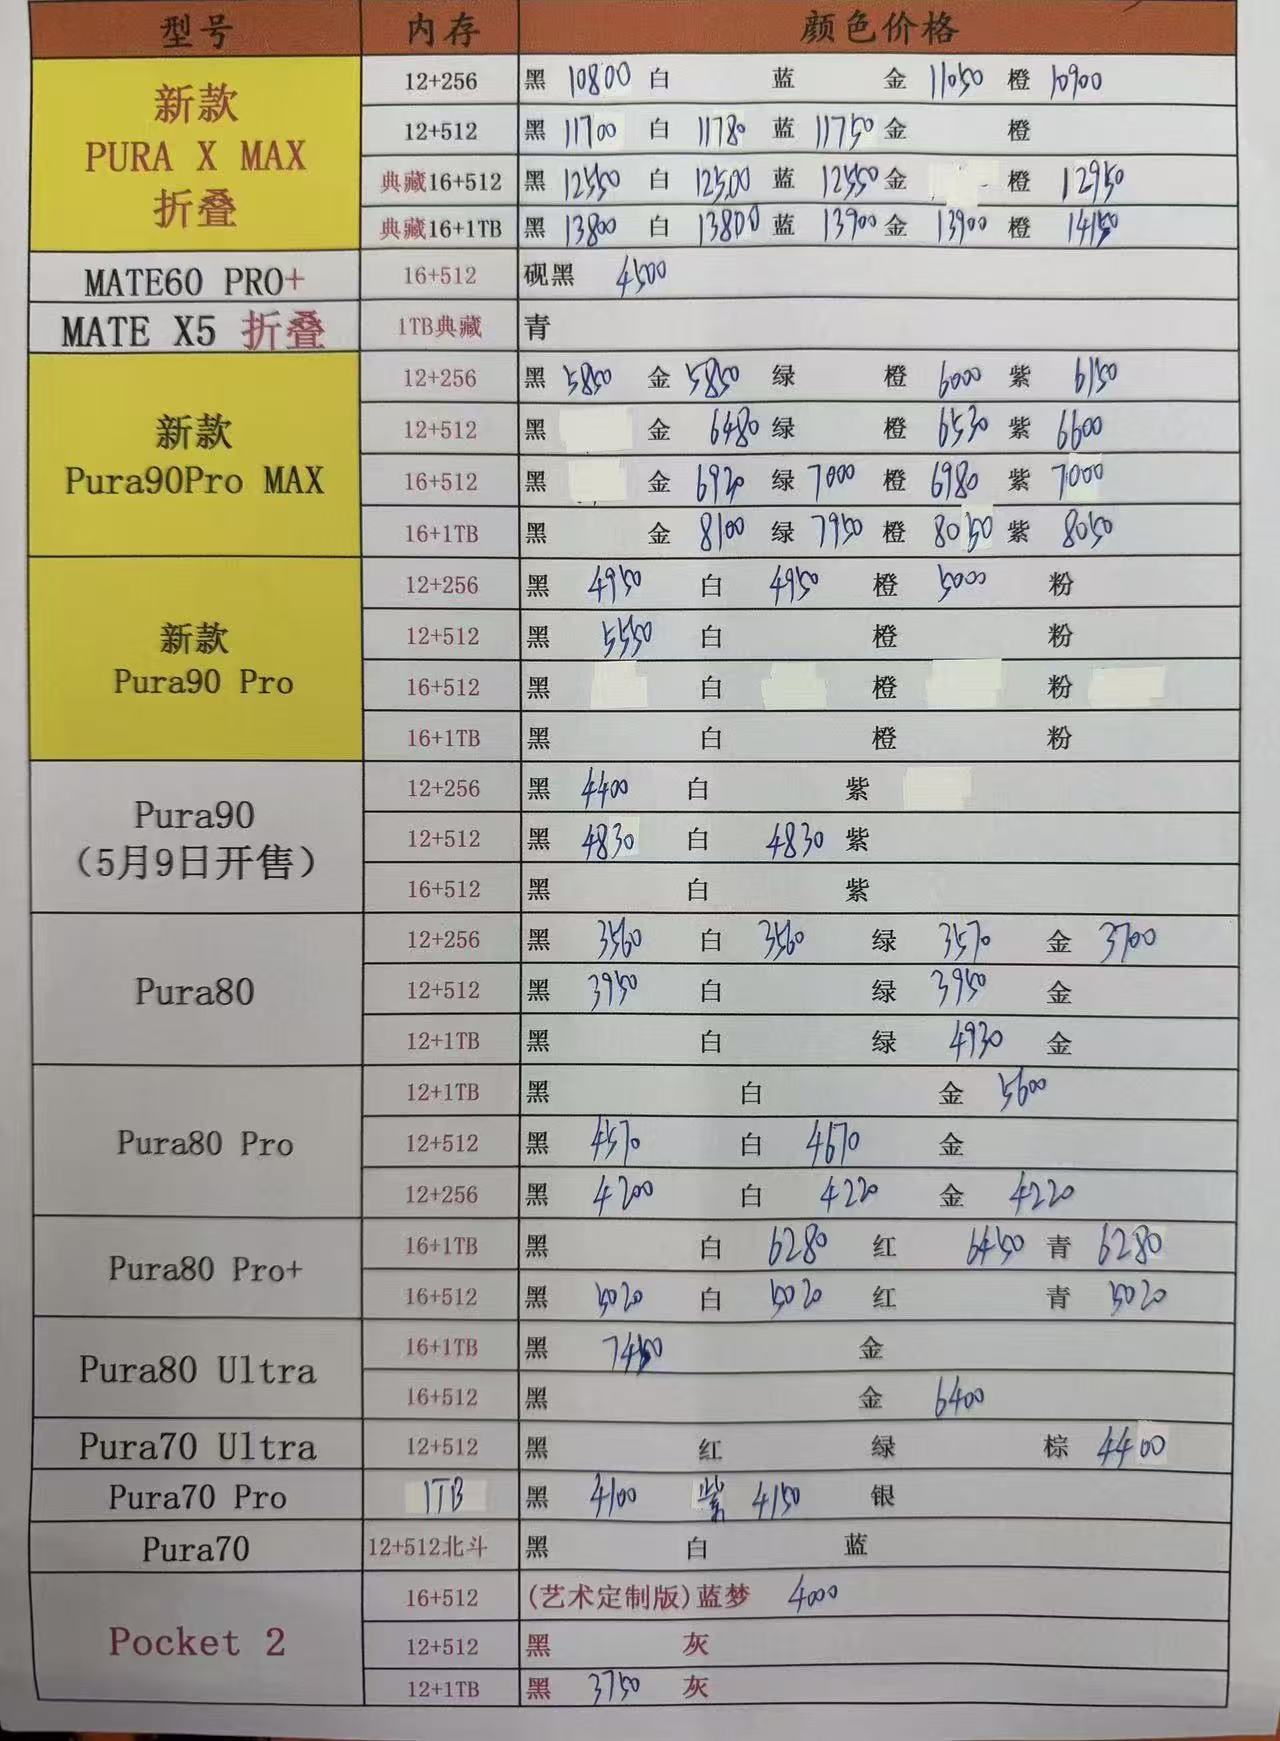 型号 内存 颜色价格
新款 PURA X MAX 折叠
12+256 黑 10800 白 蓝 金 11050 橙 10900
12+512 黑 11700 白 11780 蓝 11750 金 橙
典藏16+512 黑 12550 白 12500 蓝 12550 金 橙 12950
典藏16+1TB 黑 13800 白 13800 蓝 13900 金 13900 橙 14150
MATE60 PRO+ 16+512 砚黑 4500
MATE X5 折叠 1TB典藏 青
新款 Pura90Pro MAX
12+256 黑 5850 金 5850 绿 橙 6000 紫 6150
12+512 黑 金 6480 绿 橙 6530 紫 6600
16+512 黑 金 6920 绿 7000 橙 6980 紫 7000
16+1TB 黑 金 8100 绿 7950 橙 8050 紫 8050
新款 Pura90 Pro
12+256 黑 4950 白 4950 橙 5000 粉
12+512 黑 5550 白 橙 粉
16+512 黑 白 橙 粉
16+1TB 黑 白 橙 粉
Pura90 （5月9日开售）
12+256 黑 4400 白 紫
12+512 黑 4830 白 4830 紫
16+512 黑 白 紫
Pura80
12+256 黑 3560 白 3560 绿 3570 金 3700
12+512 黑 3950 白 绿 3950 金
12+1TB 黑 白 绿 4930 金
Pura80 Pro
12+1TB 黑 白 金 5600
12+512 黑 4570 白 4670 金
12+256 黑 4200 白 4220 金 4220
Pura80 Pro+
16+1TB 黑 白 6280 红 6450 青 6280
16+512 黑 5020 白 5020 红 青 5020
Pura80 Ultra
16+1TB 黑 7450 金
16+512 黑 金 6400
Pura70 Ultra 12+512 黑 红 绿 棕 4400
Pura70 Pro 1TB 黑 4100 紫 4150 银
Pura70 12+512北斗 黑 白 蓝
Pocket 2
16+512 (艺术定制版)蓝梦 4000
12+512 黑 灰
12+1TB 黑 3750 灰